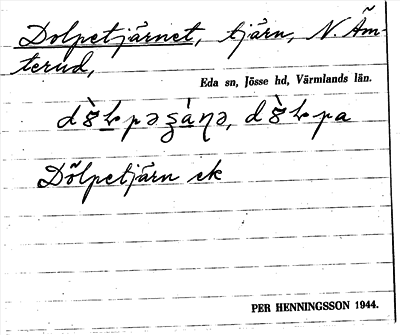 Dolpetjärnet, tjärn, N. Äm-
terud,
Eda sn, Jösse hd, Värmlands län.
Dölpetjärn ek
PER HENNINGSSON 1944.